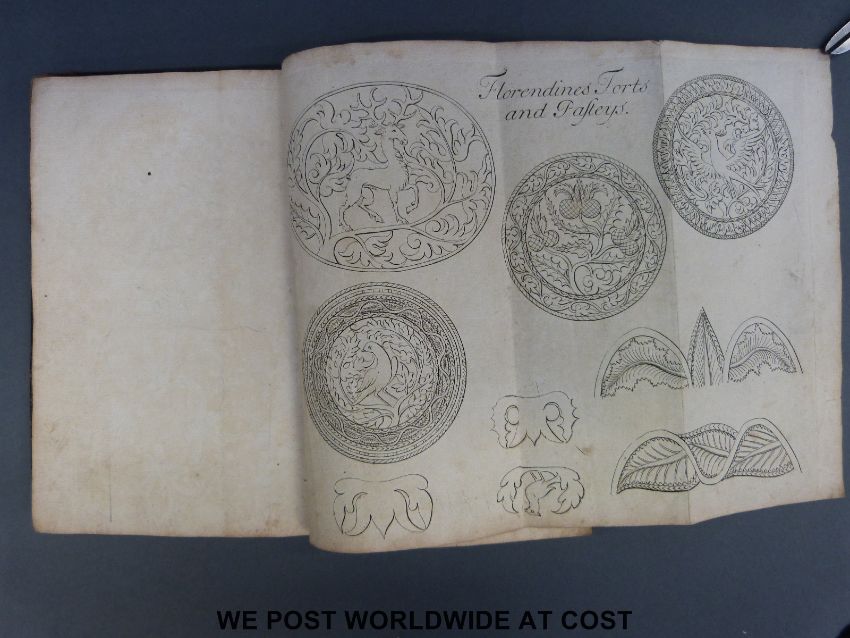 Florendines Torts
and Paſteys.
WE POST WORLDWIDE AT COST